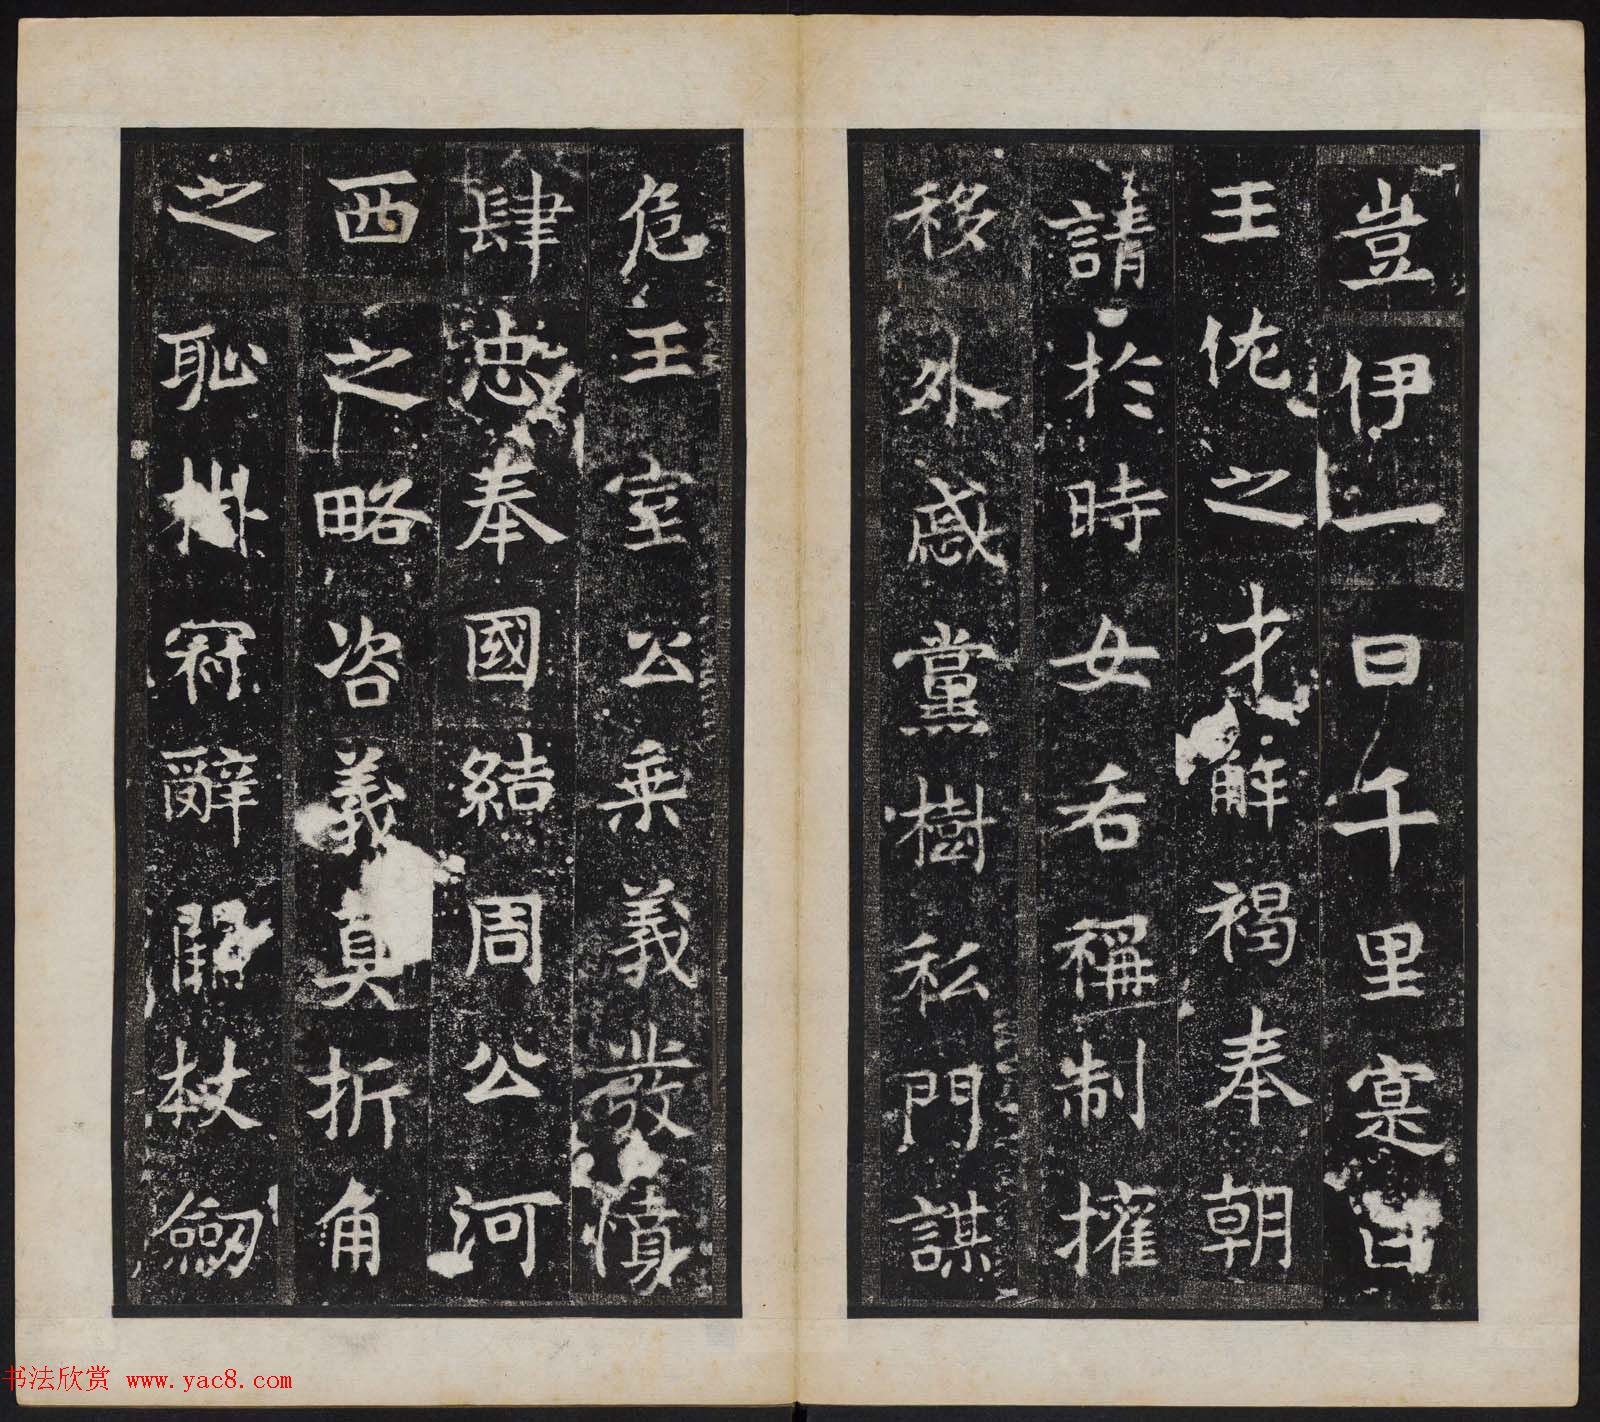 豈伊一日千里寔曰
王佐之才解褐奉朝
請於時女后稱制權
移外戚黨樹私門謀
危王室公乘義發憤
肆忠奉國結周公河
西之略咨義真折角
之恥掛冠辭闕杖劒
书法欣赏 www.yac8.com